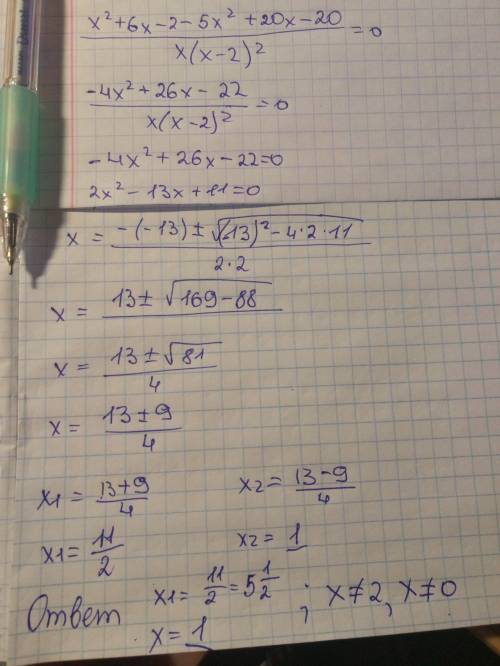 x²+6x-2-5x²+20x-20 / x(x-2)² =0
-4x²+26x-22 / x(x-2)² =0
-4x²+26x-22=0
2x²-13x+11=0
x = -(-13)±√(-13)²-4·2·11 / 2·2
x = 13±√169-88
x = 13±√81 / 4
x = 13±9 / 4
x1 = 13+9 / 4 x2 = 13-9 / 4
x1 = 11/2 x2 = 1
Ответ x1 = 11/2 = 5 1/2 ; x≠2, x≠0
x = 1